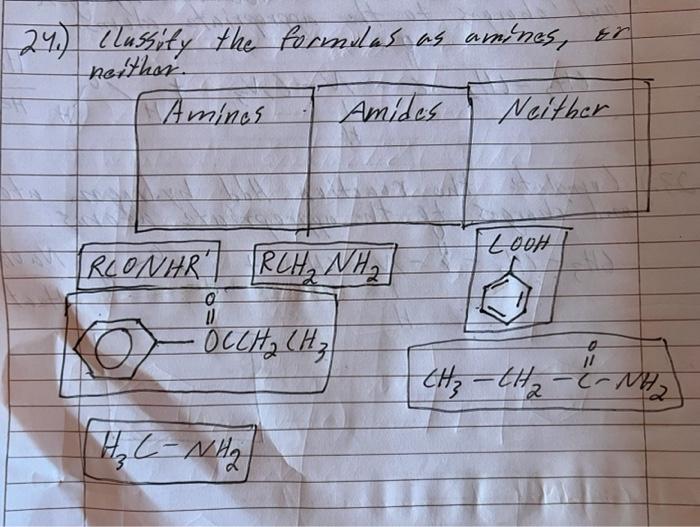 24.) Classify the formulas as amines, or
neither.
Amines Amides Neither
RCONHR' RCH2 NH2 COOH
O
||
OCCH2 CH3
O
||
CH3 - CH2 - C - NH2
H3C - NH2